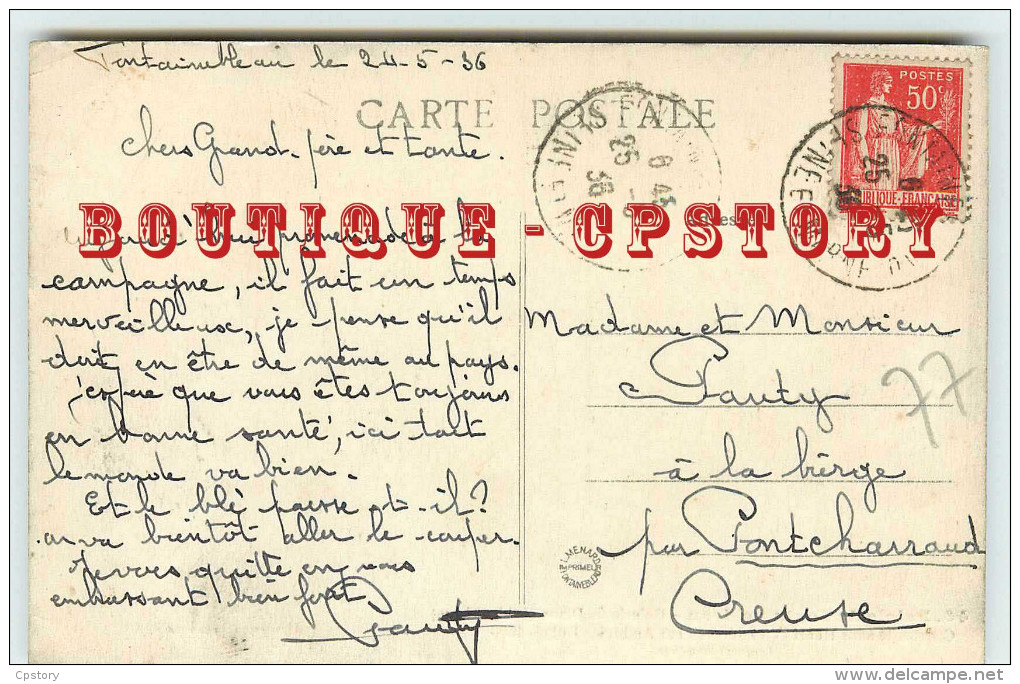 Fontainebleau le 24-5-36
CARTE POSTALE
Chers Grand-père et tante.
POSTES
50c
RÉPUBLIQUE-FRANÇAISE
BOUTIQUE - CPSTORY
promenade à la
campagne, il fait un temps
merveilleux, je pense qu'il
doit en être de même au pays.
j'espère que vous êtes toujours
en bonne santé, ici tout
le monde va bien.
Et le blé pousse-t-il?
on va bientôt aller le couper.
Je vous quitte en vous
embrassant bien fort
Pauty
Madame et Monsieur
Pauty
à la bèrge
par Pontcharraud
Creuse
77
L. MENARD
PRIMEL
FONTAINEBLEAU
SEINE ET MARNE
6 45
25 - 5
36
SEINE ET MARNE
25
36
Cpstory
www.delcampe.net